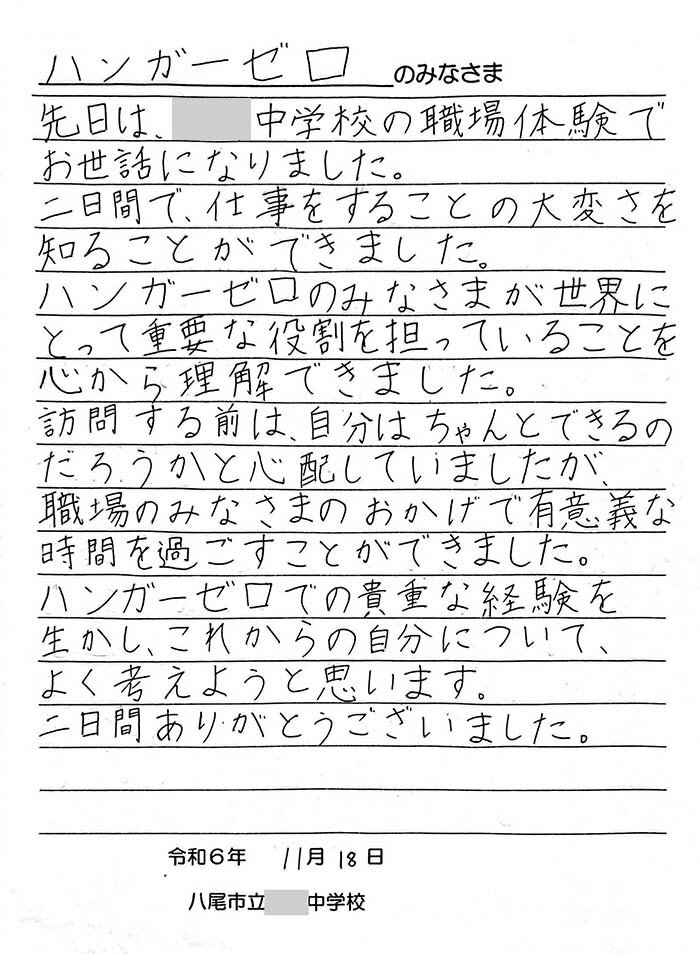 ハンガーゼロ のみなさま
先日は、 中学校の職場体験で
お世話になりました。
二日間で、仕事をすることの大変さを
知ることができました。
ハンガーゼロのみなさまが世界に
とって重要な役割を担っていることを
心から理解できました。
訪問する前は、自分はちゃんとできるの
だろうかと心配していましたが、
職場のみなさまのおかげで有意義な
時間を過ごすことができました。
ハンガーゼロでの貴重な経験を
生かし、これからの自分について、
よく考えようと思います。
二日間ありがとうございました。
令和6年 11月 18日
八尾市立 中学校